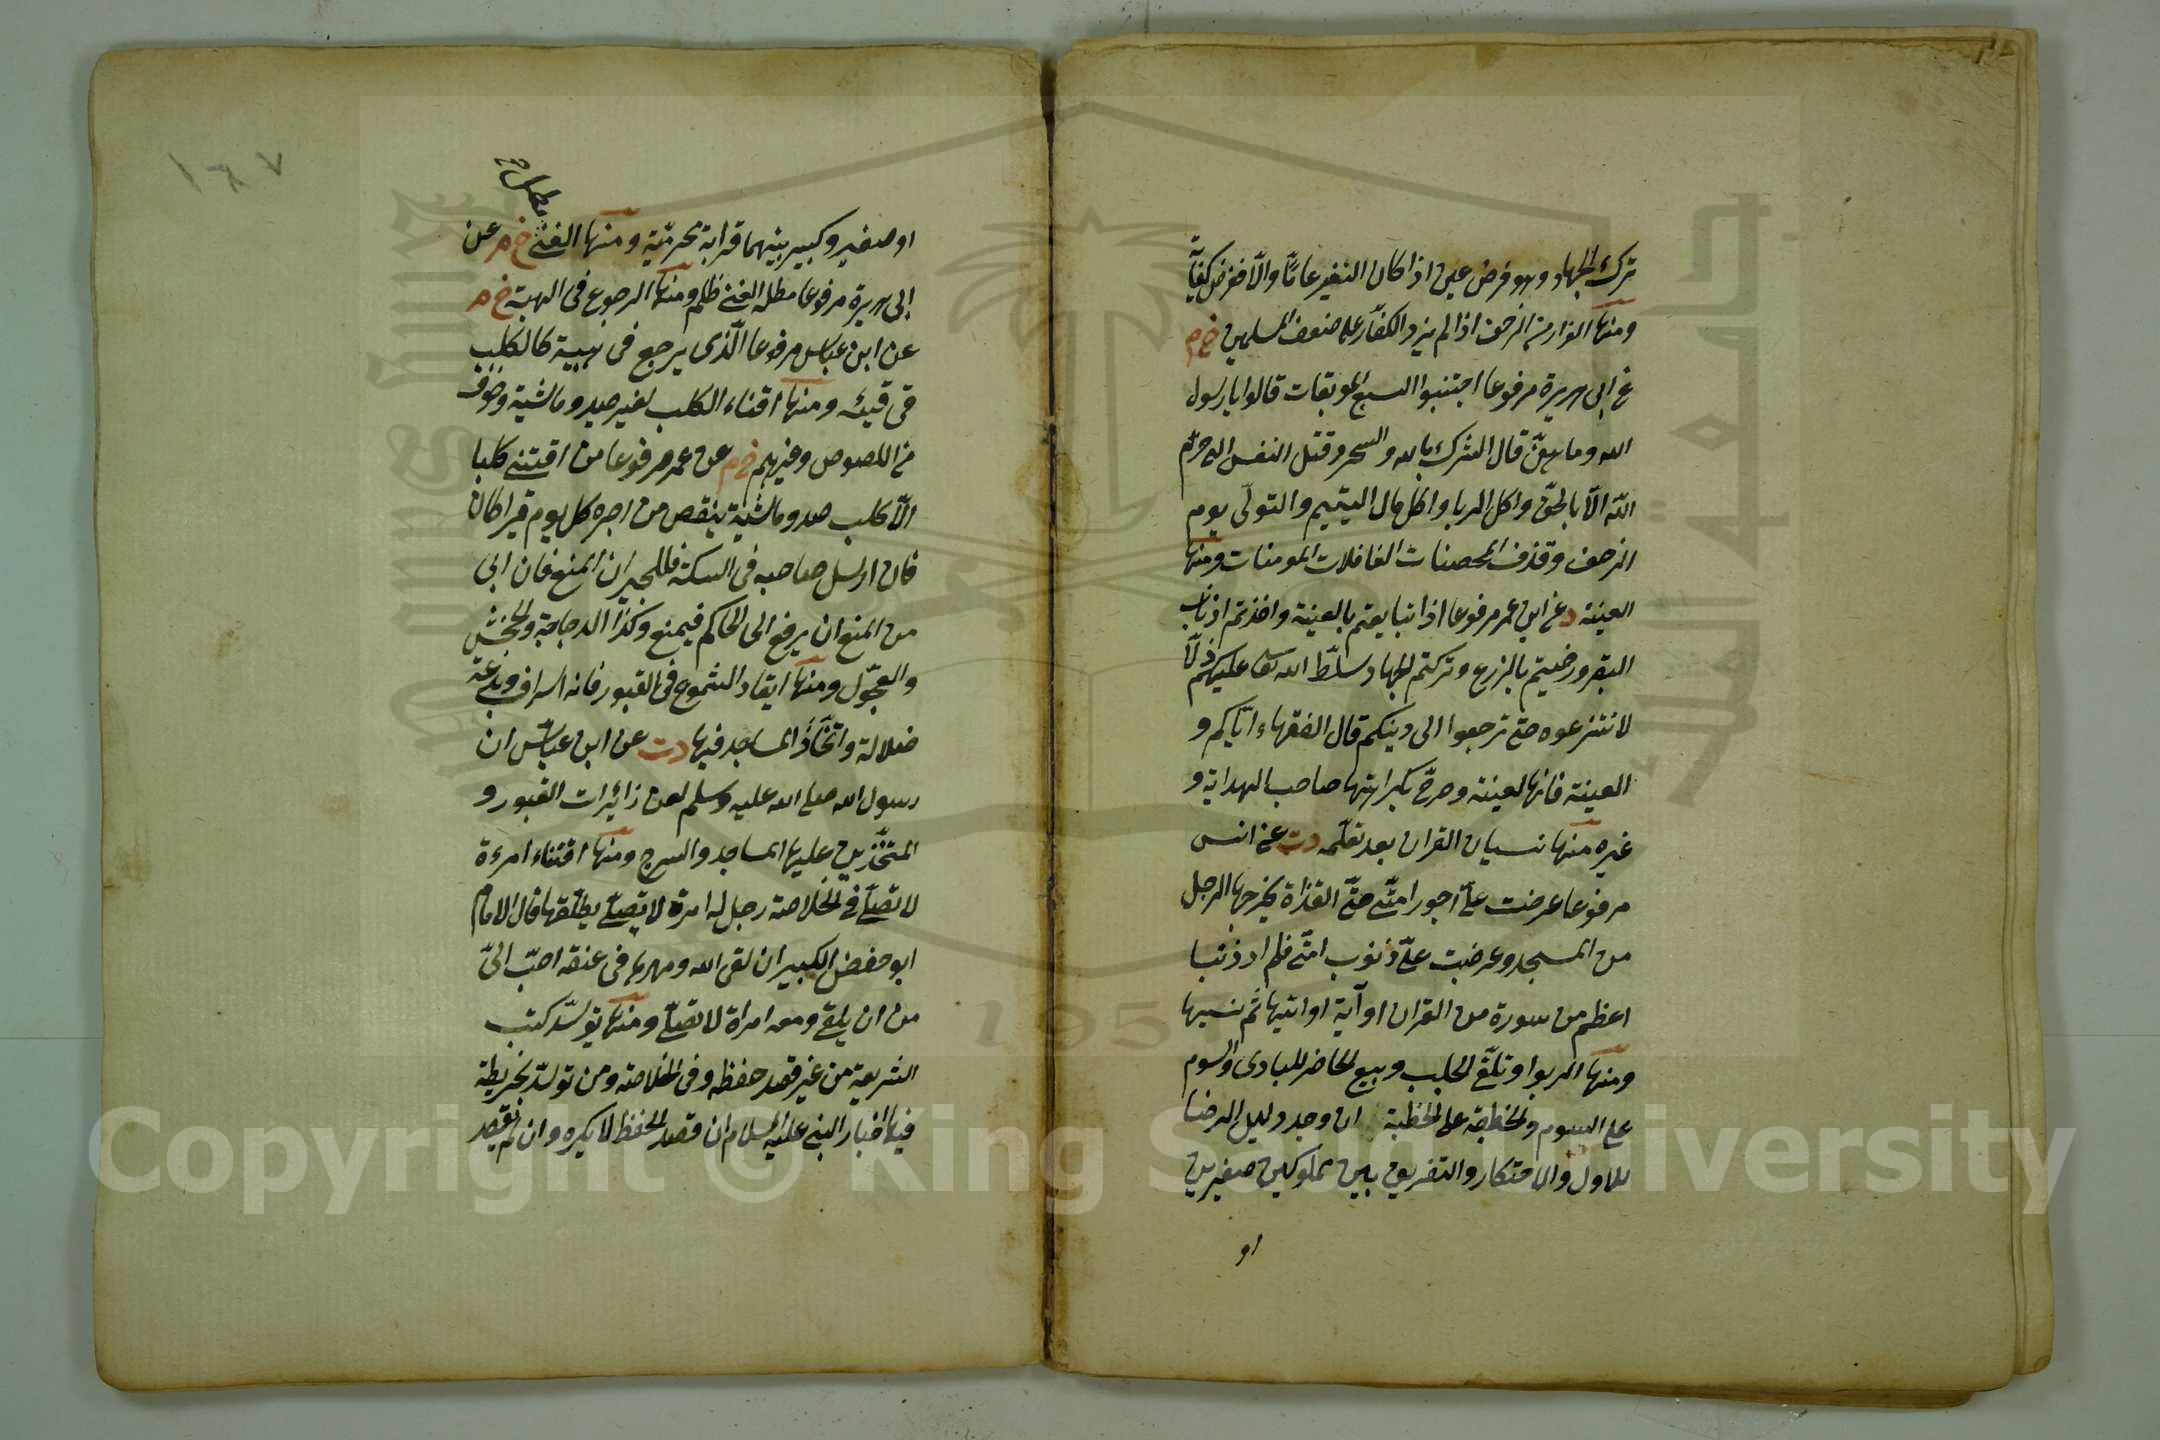 ترك الجهاد وهو فرض عين اذا كان النفير عامّا والّا ففرض كفاية
ومنها الفرار من الزحف اذا لم يزد الكفّار على ضعف المسلمين خ م
عن ابى هريرة مرفوعا اجتنبوا السبع الموبقات قالوا يا رسول
الله وما هنّ قال الشرك بالله والسحر وقتل النفس التى حرّم
الله الّا بالحقّ واكل الربا واكل مال اليتيم والتولّى يوم
الزحف وقذف المحصنات الغافلات المومنات ومنها
العينة د عن ابن عمر مرفوعا اذا تبايعتم بالعينة واخذتم اذناب
البقر ورضيتم بالزرع وتركتم الجهاد سلّط الله تعا عليكم ذلّا
لا تنزعوه حتى ترجعوا الى دينكم قال الفقهاء ايّاكم و
العينة فانها لعينة وصرّح بكراهتها صاحب الهداية و
غيره منها نسيان القران بعد تعلّمه دت عن انس
مرفوعا عرضت علىّ اجور امّتى حتّى القذاة يخرجها الرجل
من المسجد وعرضت علىّ ذنوب امّتى فلم ار ذنبا
اعظم من سورة من القران او آية اوتيها ثم نسيها
ومنها الربوا وتلقّى الجلب وبيع الحاضر للبادى والسوم
على السوم والخطبة على الخطبة ان وجد دليل الرضا
للاول والاحتكار والتفريق بين مملوكين صغيرين
او
١٨٧
مطل
او صغير وكبير بينهما قرابة محرميّة ومنها الغنى خ م عن
ابى هريرة مرفوعا مطل الغنى ظلم ومنها الرجوع فى الهبة خ م
عن ابن عباس مرفوعا الّذى يرجع فى هبته كالكلب
فى قيئه ومنها اقتناء الكلب لغير صيد وماشية وخوف
من اللصوص وغيرهم خ م عن عمر مرفوعا من اقتنى كلبا
الّا كلب صيد وماشية ينقص من اجره كل يوم قيراطان
فان ارسل صاحبه فى السكة فللجيران المنع فان ابى
من المنع ان يرفع الى الحاكم فيمنع وكذا الدجاجة والجحش
والعجّول ومنها ايقاد الشموع فى القبور فانه اسراف وبدعة
ضلالة واتّخاذ المساجد فيها دت عن ابن عبّاس ان
رسول الله صلى الله عليه وسلم لعن زائرات القبور و
المتخّذين عليها المساجد والسرج ومنها اقتناء امرءة
لا تصلّى فى الخلاصة رجل له امرة لا تصلّى يطلّقها قال الامام
ابو حفص الكبير ان لقى الله ومهرها فى عنقه احبّ الىّ
من ان يلقى ومعه امراة لا تصلّى ومنها توسّد كتب
الشريعة من غير قصد حفظه وفى الخلاصة ومن توسّد بخريطة
فيها اخبار النبى عليه السلام ان قصد الحفظ لا يكره وان لم يقصد
Copyright © King Saud University